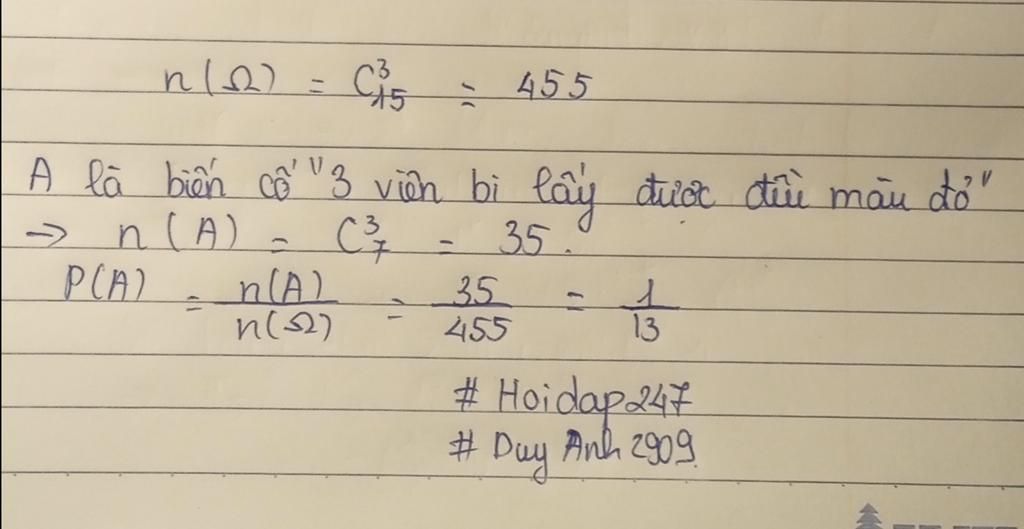 n(Ω) = C³₁₅ = 455
A là biến cố "3 viên bi lấy được đều màu đỏ"
→ n(A) = C³₇ = 35.
P(A) = n(A)/n(Ω) = 35/455 = 1/13
# Hoidap247
# Duy Anh 2909